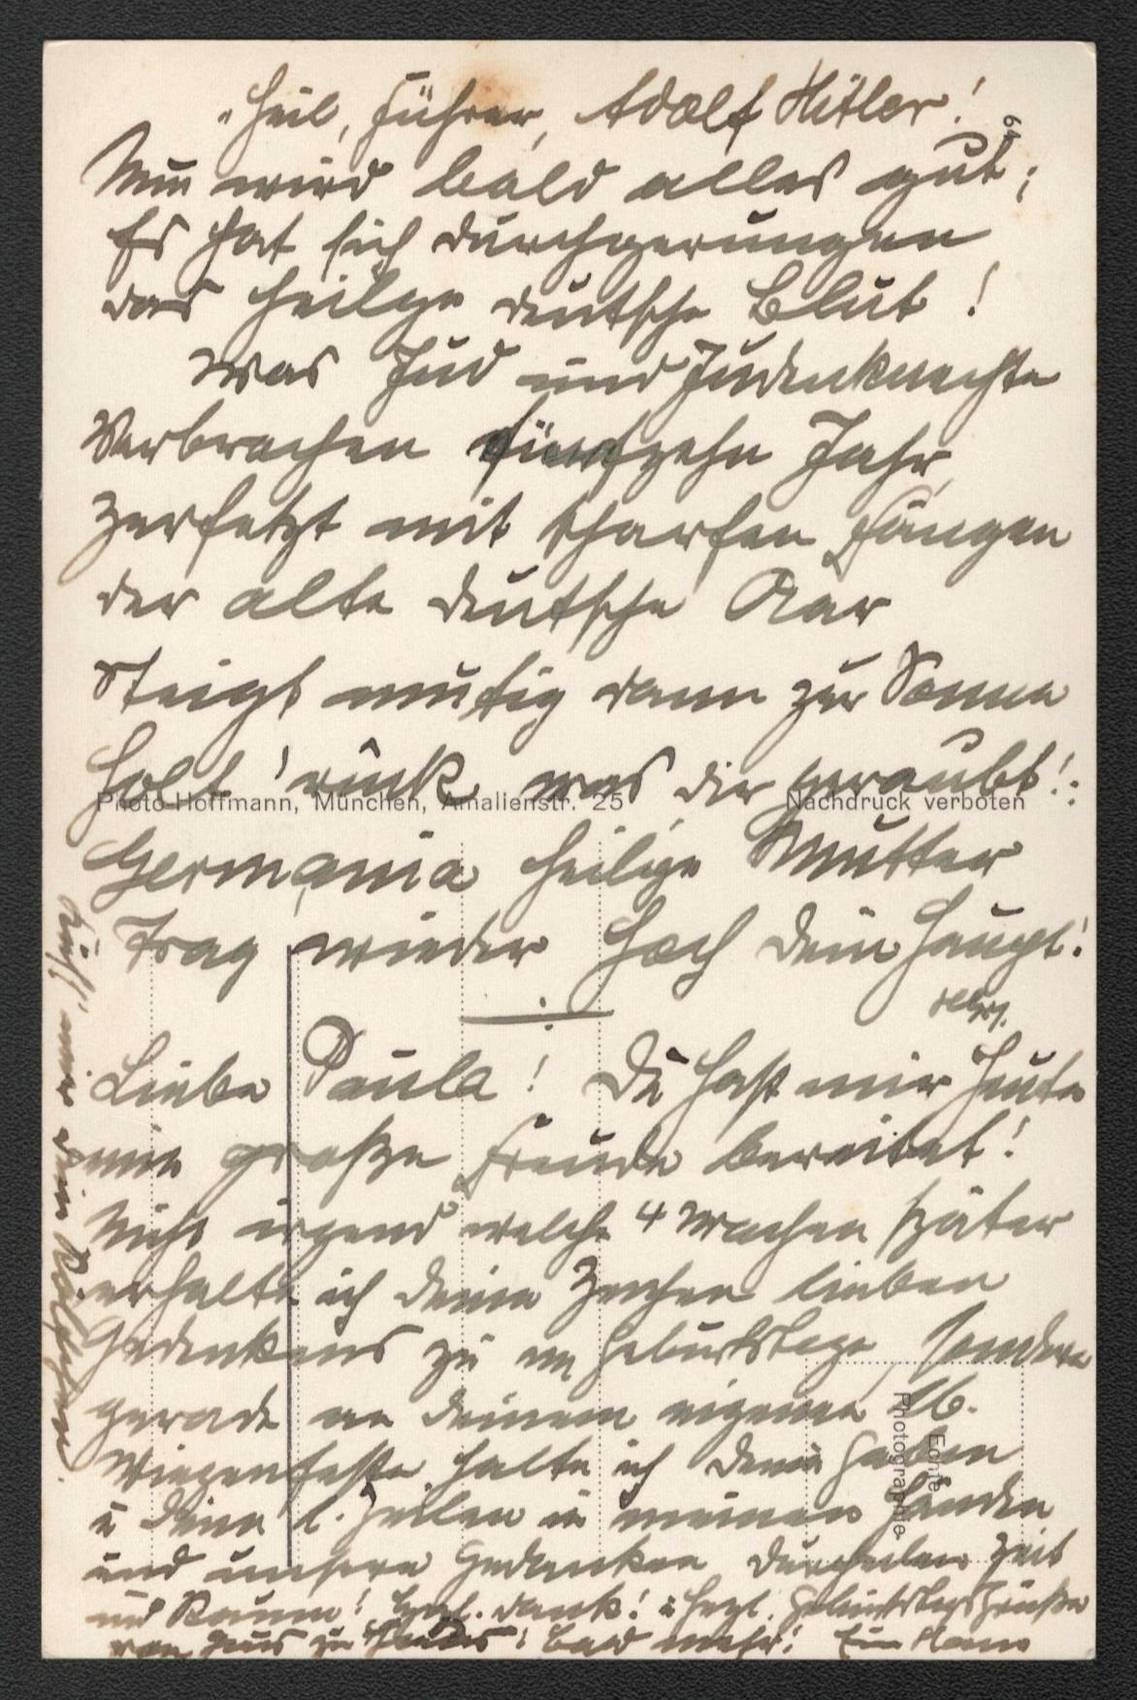 "Heil, Führer, Adolf Hitler!
64
Nun wird bald alles gut;
Es hat sich durchgerungen
das heilge deutsche Blut!
Was Jud und Judenknechte
Verbrachen fünfzehn Jahr,
Zerfetzt mit scharfen Fängen
der alte deutsche Aar
Steigt mutig dann zur Sonne
Holt 'rück was dir geraubt!:
Photo-Hoffmann, München, Amalienstr. 25 Nachdruck verboten
Germania heilge Mutter
Trag wieder hoch dein Haupt!
Liebe Paula! Du hast mir heute
eine große Freude bereitet!
Nicht irgend welche 4 Wochen später
erhalte ich deine Zeichen lieben
Gedenkens zu m Geburtstage, sondern
gerade an deinem eigenen 16.
Wiegenfeste halte ich deine Gaben
u deine l. Zeilen in meinen Händen
und unsere Gedanken durcheilen Zeit
und Raum! Dank! u herzl. Geburtstagsgrüße
von Haus zu Bald mehr!
Echte
Photographie
mir dein